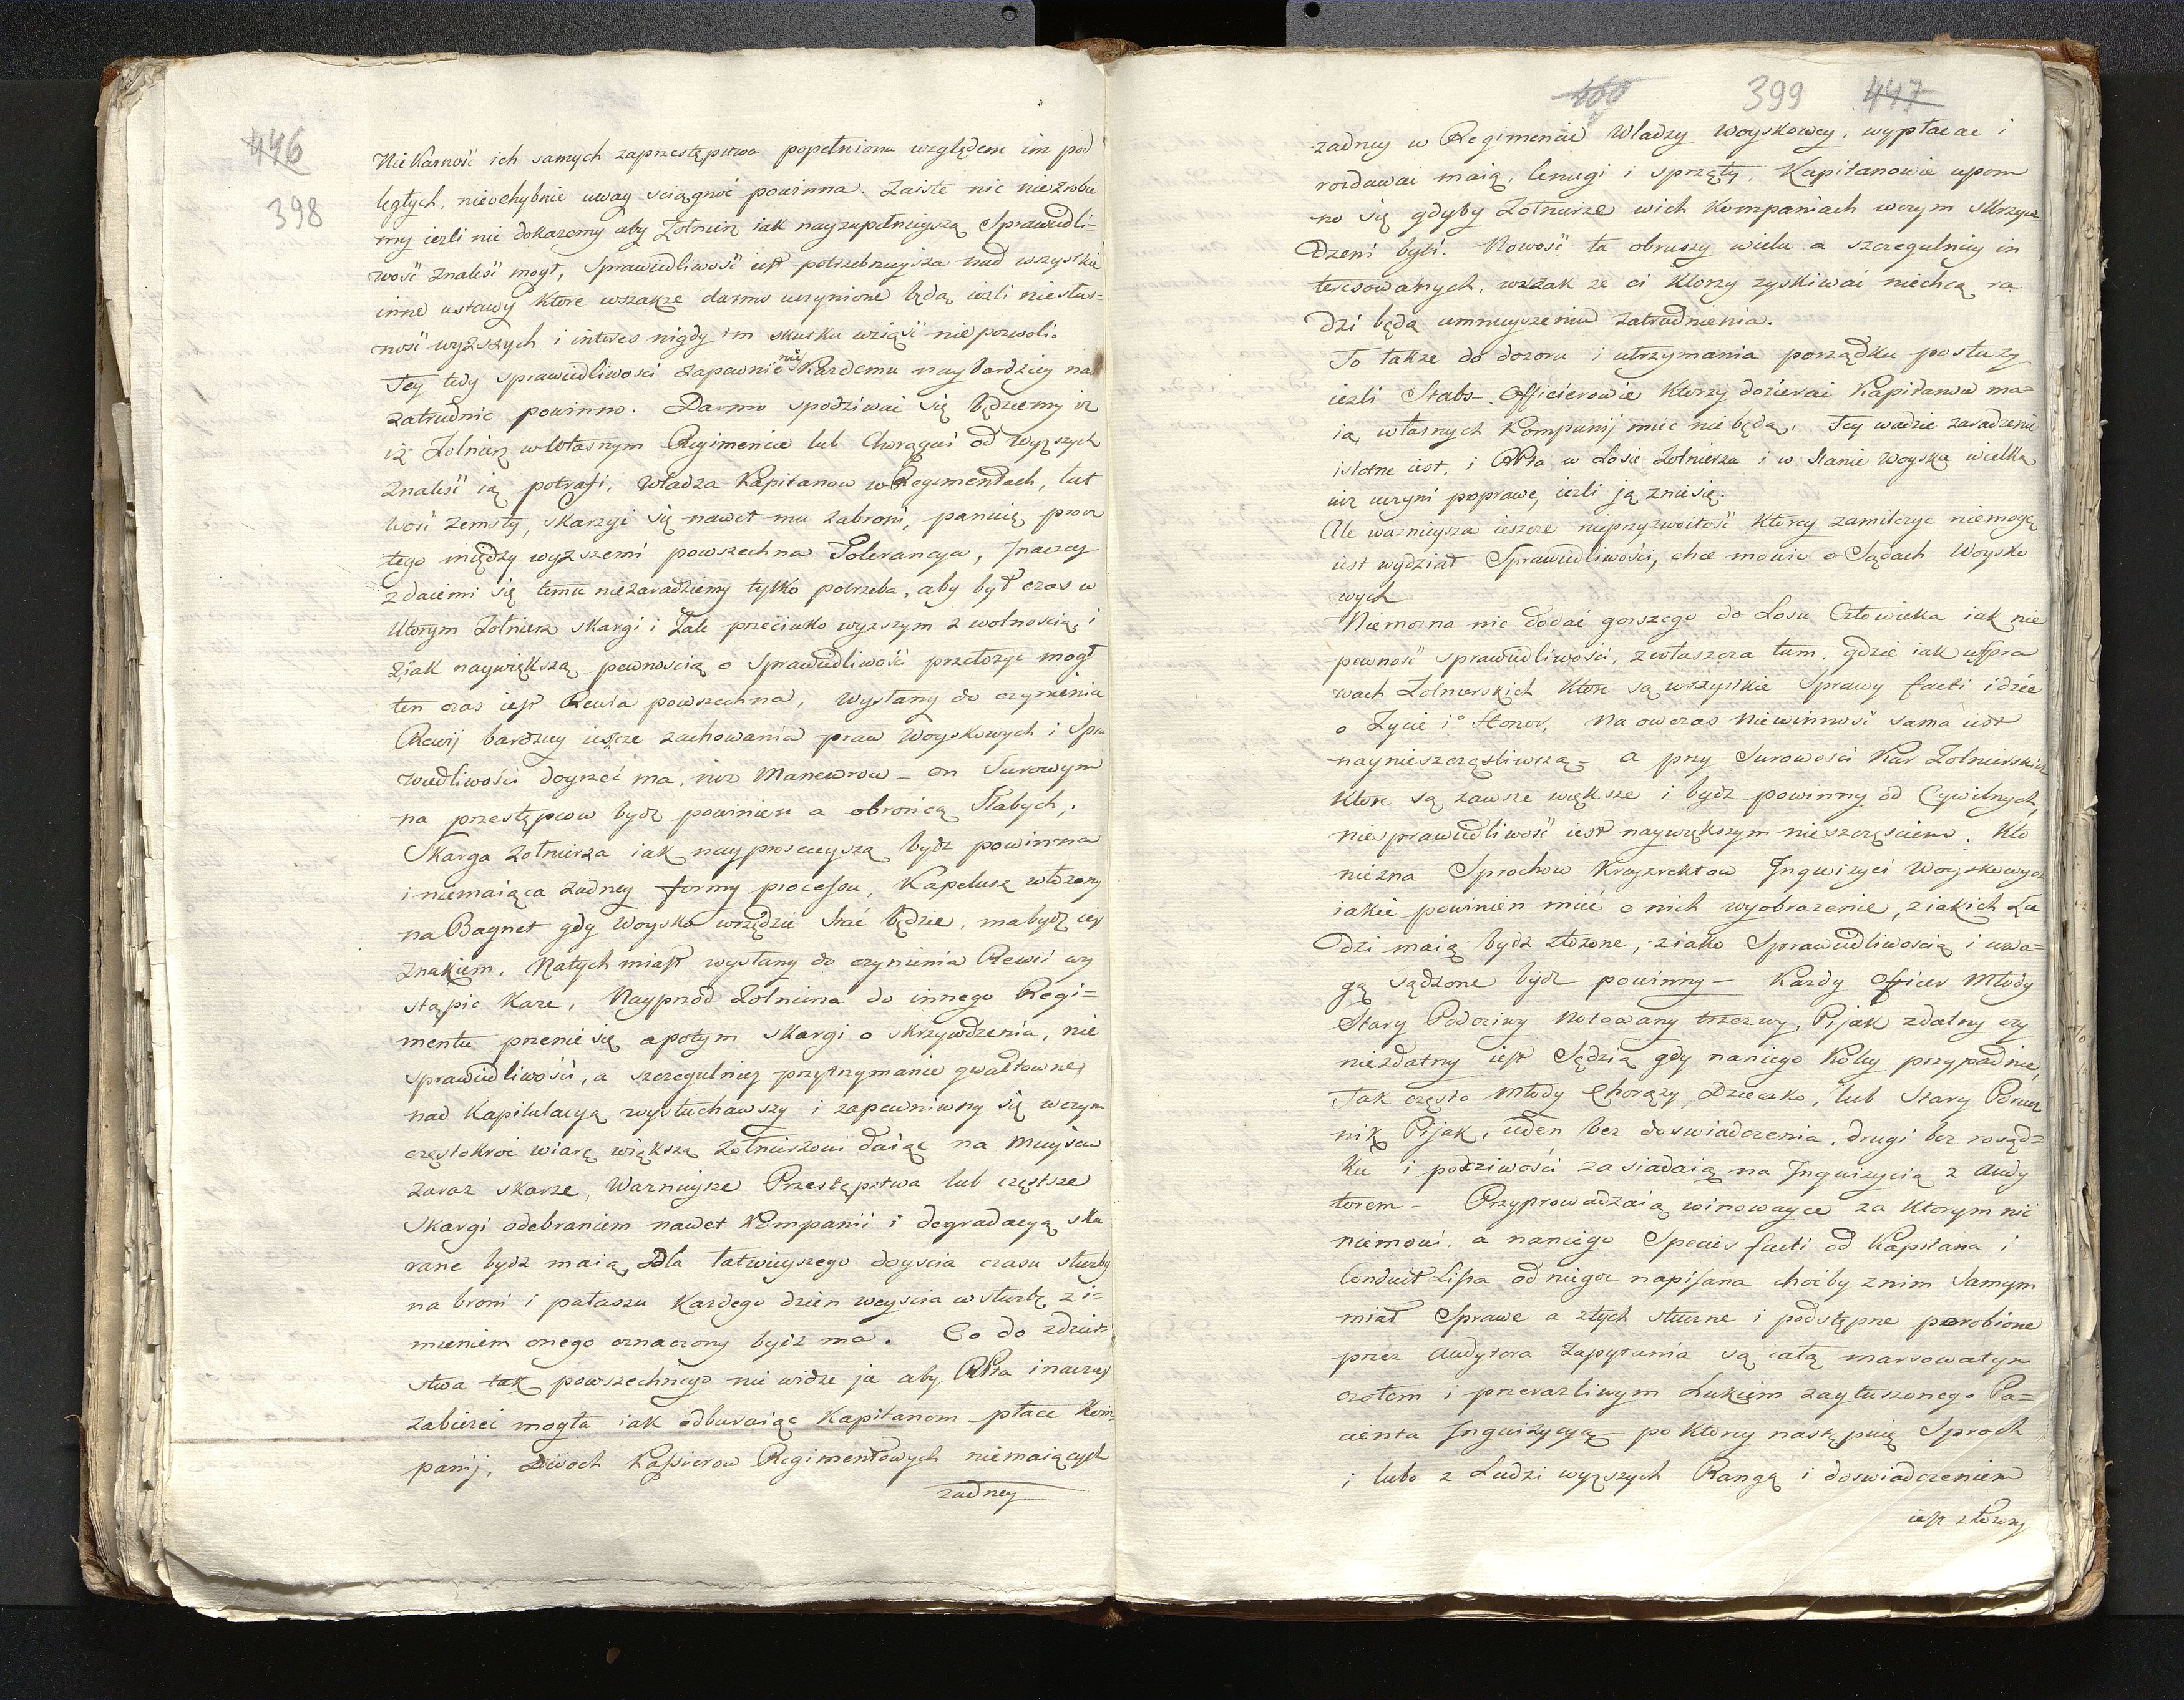 446
398
Niekarność ich samych za przestępstwa popełniona względem im pod
ległych, nieochybnie uwag sciągnoć powinna. Zaiste nic nie zrobie
my iezli nie dokazemy aby Zołnierz iak nayzupełnieyszą Sprawiedli=
wość znaleść mogł, Sprawiedliwość iest potrzebnieysza nad wszystkie
inne ustawy ktore wszakze darmo uczynione będą iezli niesłusz=
ność wyzszych i interes nigdy im skutku wziąść nie pozwoli.
Tey tedy sprawiedliwosci zapewnienie kazdemu naybardziey na
zatrudnic powinno. Darmo spodziwai się będziemy iz
iż Zołnierz w własnym Regimencie lub Chorągwi od wyzszych
znaleść ią potrafi, Władza Kapitanow w Regimentach, łat
wość zemsty, skarzyć się nawet mu zabroni, panuię procz
tego między wyzszemi powszechna Tolerancya, Inaczey
zdaiemi się temu niezaradziemy tylko potrzeba, aby był czas w
ktorym Zołnierz skargi i Zale przeciwko wyzszym z wolnością i
z iak naywiększą pewnoscią o Sprawiedliwość przełozyc mogł
ten czas iest Rewia powszechna, wysłany do czynienia
Rewij bardziey ieszcze zachowania praw Woyskowych i Spra
wiedliwości doyrzeć ma, niz Manewrow – on Surowym
na przestępcow bydz powinien a obrońcą Słabych,
Skarga zołnierza iak nayprosciey szą bydz powinna
i niemaiąca zadney formy procesu, Kapelusz włozony
na Bagnet gdy Woysko w rzędzie stać będzie, ma bydz iey
znakiem. Natychmiast wysłany do czynienia Rewii wy
stąpic kaze, Nayprzod Zołnierza do innego Regi=
mentu przenie się a potym skargi o skrzywdzenia, nie
sprawiedliwość, a szczegulniey przytrzymanie gwałtowne,
nad Kapitulacyą wysłuchawszy i zapewniwszy się w czym
częstokroć wiarę większą zołnierzowi daiąc na mieyscu
zaraz skarze, Wazniejsze Przestępstwa lub częstsze
skargi odebraniem nawet Kompanii i degradacyą ska
rane bydz maią, Dla łatwieyszego doyscia czasu sluzby
na broni i pałaszu Kazdego dzien weyscia w sluzbę z i=
mieniem onego oznaczony bydz ma. Co do zdzier
stwa tak powszechnego nie widze ja aby RPta inaczey
zabiezeć mogła iak odbieraiąc Kapitanom płace Kom=
panij, Dwoch Kassierow Regimentowych niemaiących
zadney
400 399 447
zadney w Regimencie Władzy Woyskowey, wypłacac i
rozdawai maią, lenugi i sprzęty, Kapitanowie upom
no się gdyby Zołnierze w ich Kompaniach w czym skrzyw
dzeni byli. Nowość ta obruszy wielu a szczegulniey in
teresowanych, wszak ze ci ktorzy zyskiwai niechcą ra
dzi będą umnieyszeniu zatrudnienia.
To takze do dozoru i utrzymania porządku posłuzy
iezli Stabs-Officierowie ktorzy dozierai Kapitanow ma=
ią, własnych Kompanij miec nie będą, Tey wadzie zaradzenie
istotne iest, i RPta w Losie Zołnierza i w Stanie Woyska wielką
uczyni poprawę, iezli ją zniesię.
Ale waznieysza ieszcze nieprzyzwoitość ktorey zamilczyc niemogę
iest wydział Sprawiedliwości, chce mowic o Sądach Woysko
wych
Niemozna nic dodać gorszego do Losu Człowieka iak nie
pewność sprawiedliwości, zwłaszcza tam, gdzie iak w spra
wach Zolnierskich ktore są wszystkie Sprawy facti idzie
o Zycie i o Honor, na owczas Niewinność sama iest
naynieszczęśliwszą – a przy Surowości Kar Zolnierskich
ktore są zawsze większe i bydz powinny od Cywilnych,
niesprawiedliwość iest naywiększym nieszczęsciem. Kto
niezna Sprochow Krygsrechtow Inqwizycj Woyskowych
iakie powinien mieć o nich wyobrazenie, z iakich Lu
dzi maią bydz złozone, z iako Sprawiedliwością i uwa=
gą sądzone bydz powinny – Kazdy Officer Młody
Stary Podcziwy Notowany trzezwy, Pijak zdatny czy
niezdatny iest Sędzią gdy naniego Koley przypadnie,
Tak często Młody Chorązy, Dziecko, lub Stary Porucz
nik Pijak, ieden bez doswiadczenia, drugi bez rosąd=
ku i podziwości zasiadaią na Inquizycią z Audy
torem – Przyprowadzaią winowayce za ktorym nic
niemowi, a naniego Species facti od Kapitana i
Conduit Lista od niegoz napisana choćby z nim samym
miał Sprawe a złych sluczne i podstępne porobione
przez Audytora Zapytania są całą marsowatym
czołem i przerazliwym hukiem zagłuszonego Pa=
cienta Inquizycyą – po ktorey następuię Sproch
i lubo z Ludzi wyzszych Rangą i doswiadczeniem
iest złozony